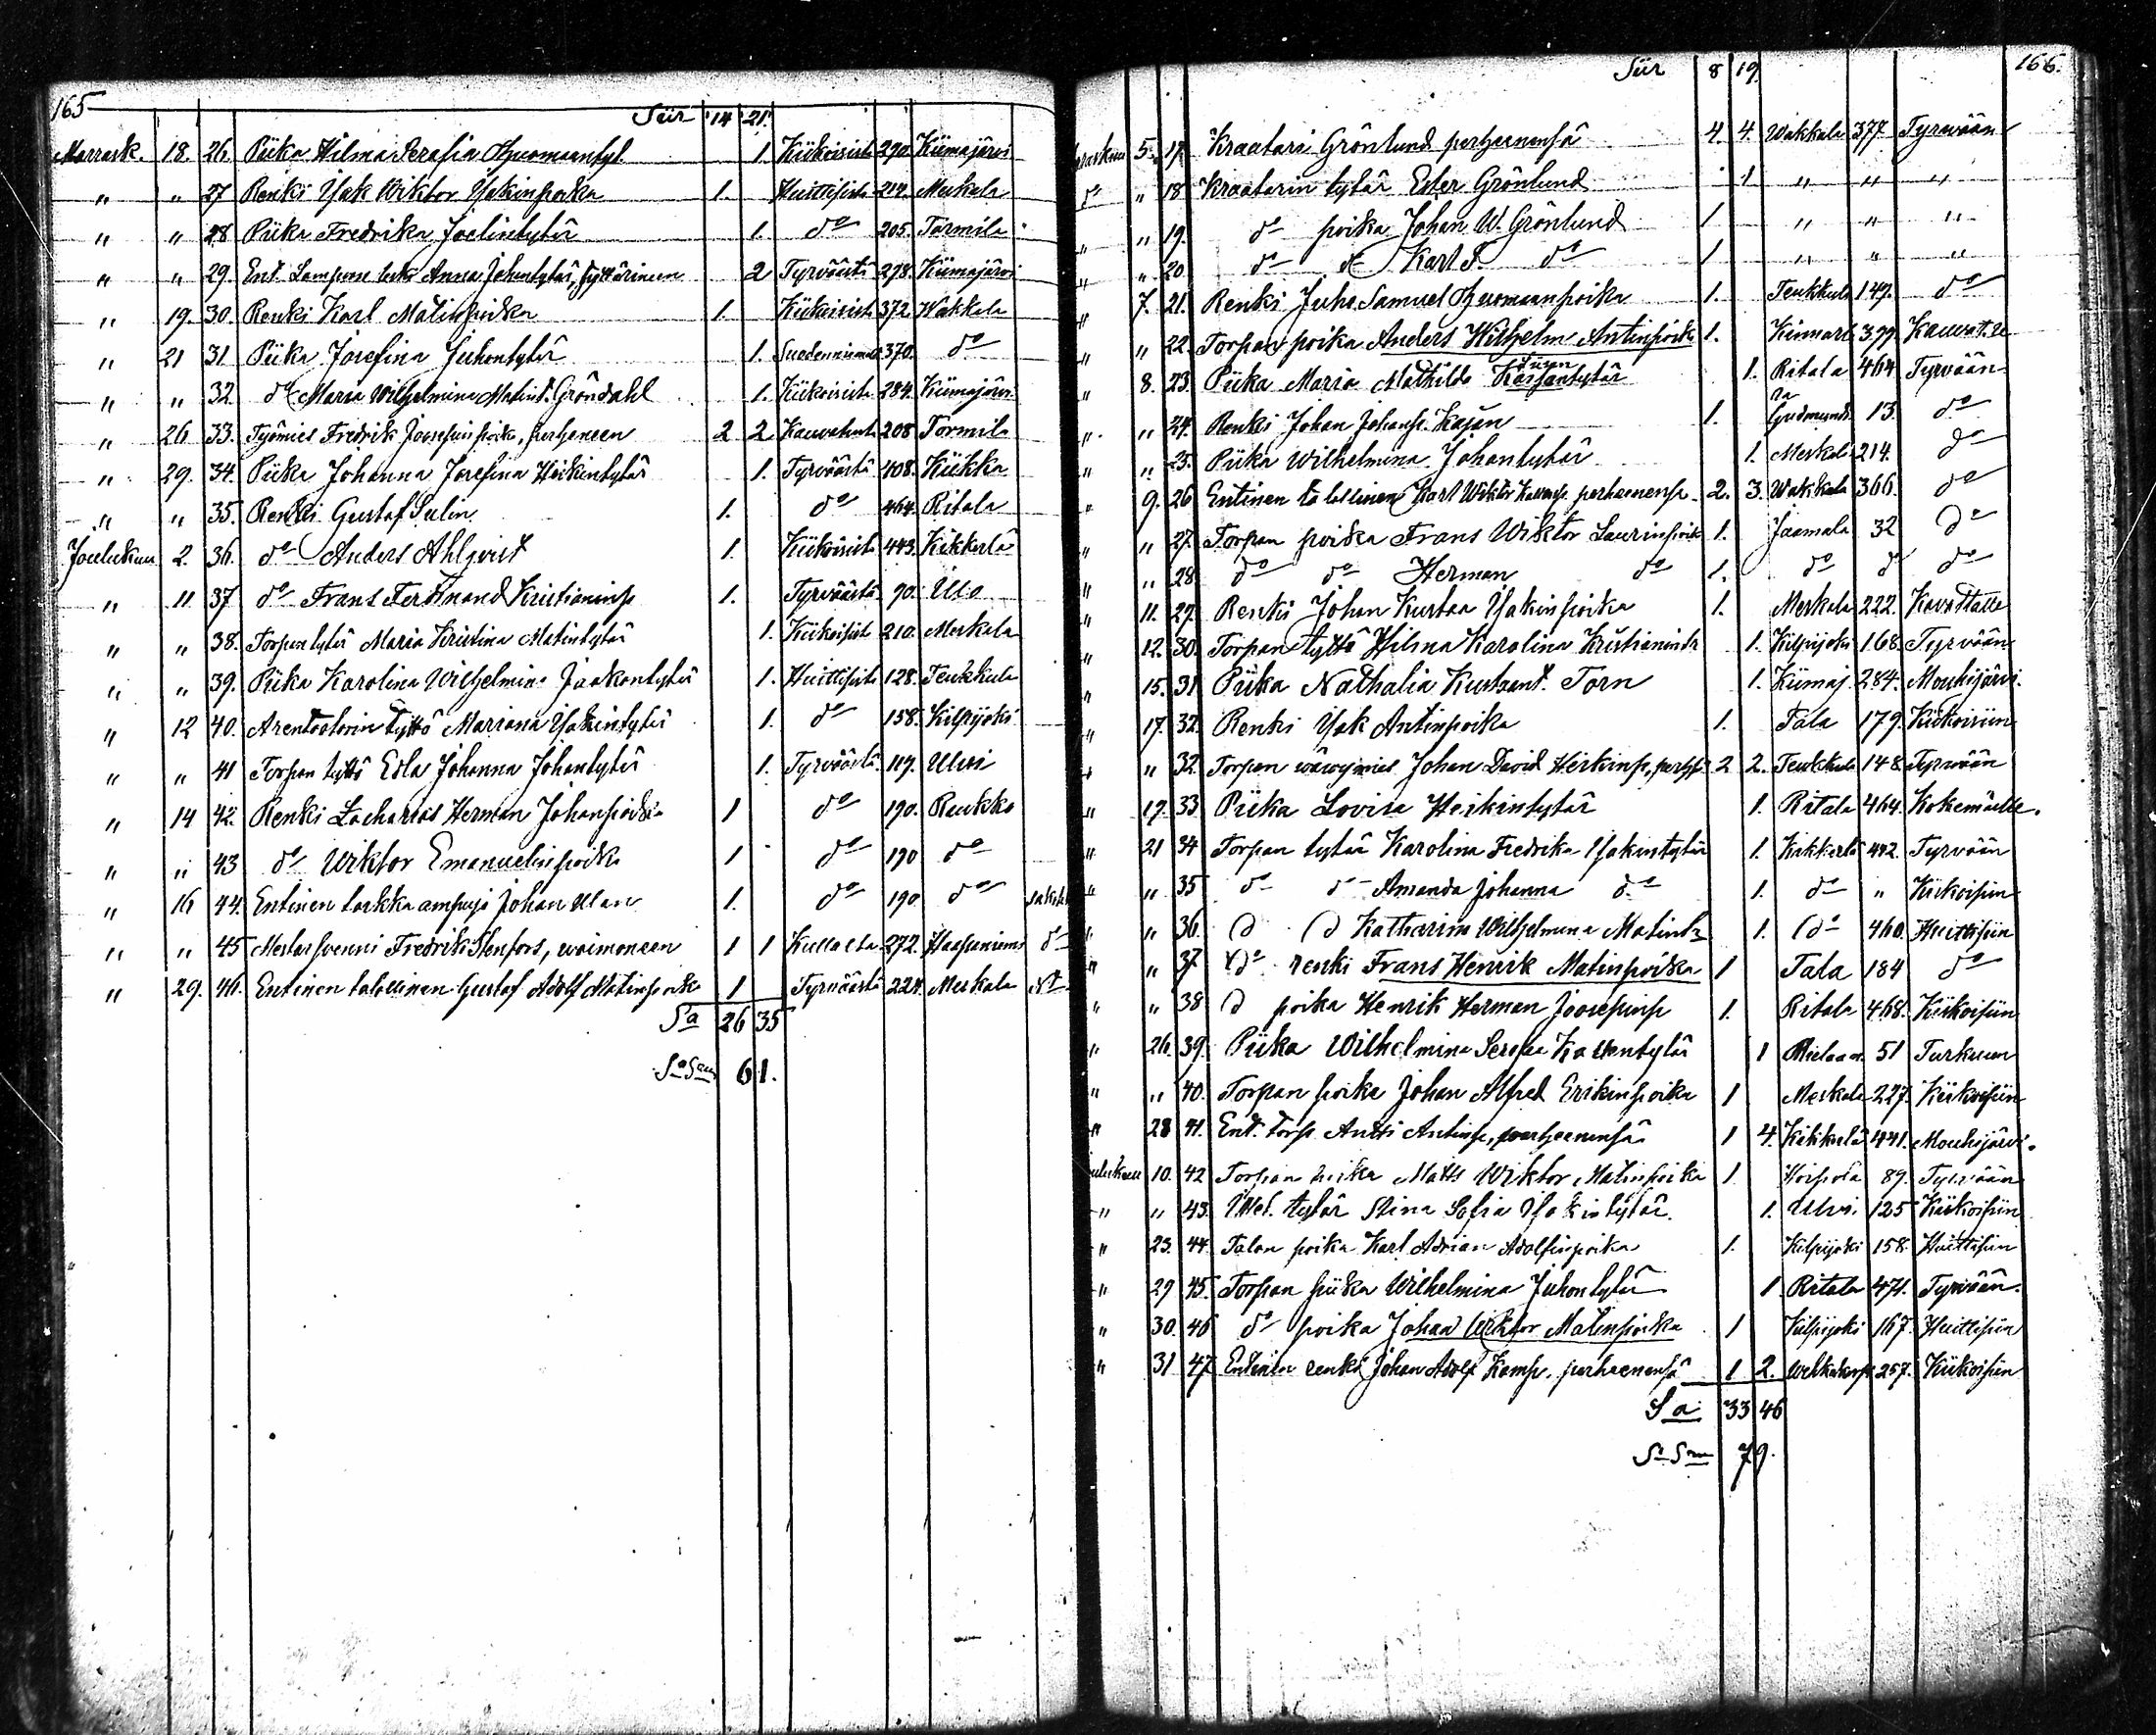 165
Siir 14 21.
Marrask. 18. 26. Piika Hilma Serafia Tuomaantyt. 1. Kiikoisista 290. Kiimajärvi
" " 27 Renki Isak Wiktor Isakinpoika 1. Huittisista 214. Meskala
" " 28 Piika Fredrika Joelintytär 1. do 205. Tormila
" " 29. Ent. Lampuo leski Anna Johantytär, tyttärineen 2 Tyrväästä 278. Kiimajärvi
" 19. 30. Renki Karl Matinpoika 1. Kiikoisista 372. Wakkala
" 21 31 Piika Josefina Juhontytär 1. Suodenniemeltä 370. do
" " 32. do Maria Wilhelmina Matint. Gröndahl 1. Kiikoisista 284. Kiimajärvi
" 26 33. Työmies Fredrik Joosepinpoika, perheneen 2 2 Kauvatsasta 208 Tormila
" 29. 34. Piika Johanna Josefina Heikintytär 1. Tyrväästä 408. Kiikka
" " 35. Renki Gustaf Sulin 1. do 464. Ritala
Joulukuu 2. 36. do Anders Ahlqvist 1. Kiikoisista 443. Kikkerlä
" 11 37 do Frans Ferdinand Kristianinp 1. Tyrväästä 90. Ulvi
" " 38. Torpan tytär Maria Kristina Matintytär 1. Kiikoisista 210. Meskala
" " 39. Piika Karolina Wilhelmina Jaakontytär 1. Huittisista 128. Teukkula
" 12 40. Arentoitorin tyttö Mariana Isakintytär 1. do 158. Kilpijoki
" " 41 Torpan tyttö Eola Johanna Johantytär 1. Tyrväästä 119. Ulvi
" 14 42. Renki Zacharias Herman Johanpoika 1 do 190. Raukko
" " 43 do Wiktor Emanuelinpoika 1 do 190 do
" 16 44. Entinen tarkka ampuja Johan Ulan 1. do 190. do
" " 45 Mestarsvenni Fredrik Stenfors, waimoneen 1 1 Kullaalta 272. Haapaniemi do
" 29. 46. Entinen talollinen Gustaf Adolf Matinpoika 1 Tyrväästä 224. Meskala
Sa 26 35
Sa Sum 61.
166.
Siir 8 19.
5. 17. Kraatari Grönlund perheenensä 4. 4. Wakkala 377. Tyrvään
do " 18 Kraatarin tytär Ester Grönlund 1 " " "
" " 19. do poika Johan W. Grönlund 1 " " "
" " 20 do do Karl F. do 1 " " "
" 7. 21. Renki Juho Samuel Tuomaanpoika 1. Teukkula 149. do
" " 22. Torpan poika Anders Wilhelm Antinpoika 1. Kinnari 399. Kauvatsa
" 8. 23. Piika Maria Mathilda Kaisantytär 1. Ritala 464 Tyrvään
" " 24. Renki Johan Johanp. Kaján 1. Gudmunds. 13. do
" " 25. Piika Wilhelmina Johantytär 1. Meskala 214. do
" 9. 26 Entinen talollinen Karl Wiktor Kallenp. perheenensä 2. 3. Wakkala 366. do
" " 27. Torpan poika Frans Wiktor Laurinpoika 1. Jaamala 32 do
" " 28 do do Herman do 1. do do do
" 11. 29. Renki Johan Kustaa Isakinpoika 1. Meskala 222. Kavatsalle
" 12. 30. Torpan tyttö Hilma Karolina Kristianintr 1. Kilpijoki 168. Tyrvään
" 15. 31 Piika Nathalia Kustaant. Torn 1. Kiimaj. 284. Mouhijärvi.
" 17. 32. Renki Isak Antinpoika 1. Tala 179. Kiikoisiin
" " 32. Torpan wäwymies Johan David Heikinp., perh. 2 2. Teukkula 148 Tyrvään
" 19. 33 Piika Lovisa Heikintytär 1. Ritala 464. Kokemäelle.
" 21 34 Torpan tytär Karolina Fredrika Isakintytär 1. Kikkerlä 442. Tyrvään
" " 35 do do Amanda Johanna do 1. do " Kiikoisiin
" " 36. do do Katharina Wilhelmina Matintr 1. do 460. Huittisiin
" " 37 do renki Frans Henrik Matinpoika 1 Tala 184 do
" " 38 do poika Henrik Herman Joosepinp 1. Ritala 468. Kiikoisiin
" 26. 39. Piika Wilhelmina Serafia Kallentytär 1 51 Turkuun
" " 40. Torpan poika Johan Alfred Erikinpoika 1 Meskala 227. Kiikoisiin
" 28 41. Ent. torp. Antti Antinp., perheenensä 1 4. Kikkerlä 441. Mouhijärvi.
10. 42 Torpan poika Matts Wiktor Matinpoika 1 Hoipola 89. Tyrvään
" " 43. Itsel. tytär Stina Sofia Isakintytär. 1. Ulvi 125 Kiikoisiin
" 23. 44. Talon poika Karl Adrian Adolfinpoika 1. Kilpijoki 158. Huittisiin
" 29 45. Torpan piika Wilhelmina Juhontytär 1 Ritala 471. Tyrvään.
" 30. 46 do poika Johan Wiktor Matinpoika 1 Kilpijoki 167. Huittisiin
" 31 47 Entinen renki Johan Adolf Kamp. perheenensä 1 2. 257. Kiikoisiin
Sa 33 46
Sa Sum 79.